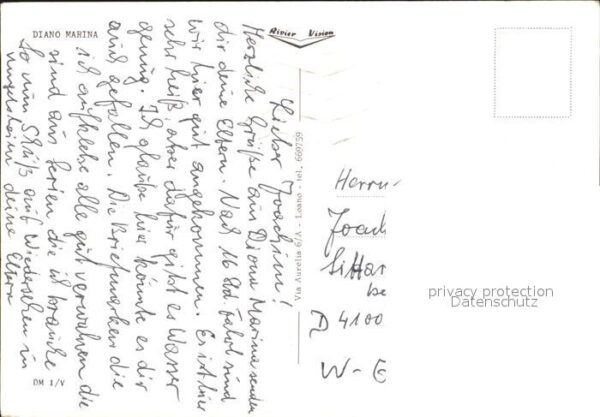 DIANO MARINA
Rivier Vision
Lieber Joachim!
Herzliche Grüße aus Diano Marina senden
dir deine Eltern. Nach 16 Std Fahrt sind
wir hier gut angekommen. Es ist hier
sehr heiß, aber dafür gibt es Wasser
genug. Ich glaube hier könnte es dir
auch gefallen. Die Briefmarken die
ich aufklebe alle gut verwahren die
sind aus Serien die ich brauche
So nun Schluß auf Wiedersehen in
deine Eltern
DM 1/V
Via Aurelia 6/A - Loano - tel. 669759
Herrn
Joach
Sittar
be
D 4100
W-G
privacy protection
Datenschutz